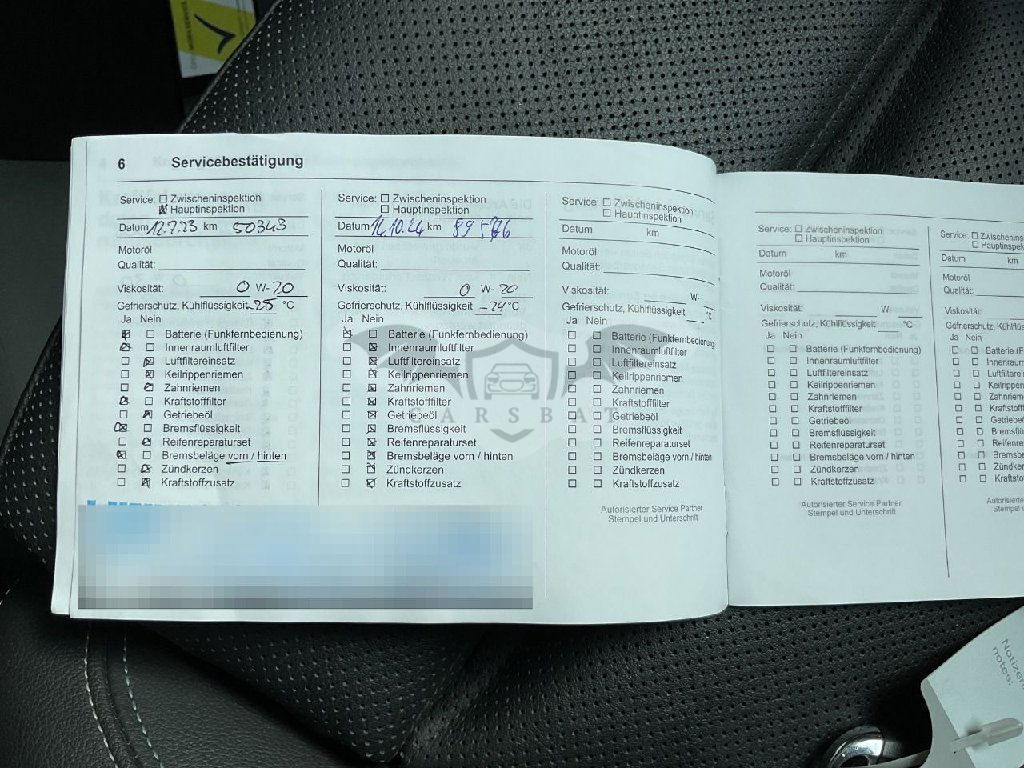 6 Servicebestätigung
Service: Zwischeninspektion
Hauptinspektion
Datum 12.7.23 km 50343
Motoröl
Qualität:
Viskosität: 0 W-20
Gefrierschutz, Kühlflüssigkeit -25 °C
Ja Nein
Batterie (Funkfernbedienung)
Innenraumluftfilter
Luftfiltereinsatz
Keilrippenriemen
Zahnriemen
Kraftstofffilter
Getriebeöl
Bremsflüssigkeit
Reifenreparaturset
Bremsbeläge vorn / hinten
Zündkerzen
Kraftstoffzusatz
Service: Zwischeninspektion
Hauptinspektion
Datum km
Motoröl
Qualität:
Viskosität: 0 W-20
Gefrierschutz, Kühlflüssigkeit -24 °C
Ja Nein
Batterie (Funkfernbedienung)
Innenraumluftfilter
Luftfiltereinsatz
Keilrippenriemen
Zahnriemen
Kraftstofffilter
Getriebeöl
Bremsflüssigkeit
Reifenreparaturset
Bremsbeläge vorn / hinten
Zündkerzen
Kraftstoffzusatz
Service: Zwischeninspektion
Hauptinspektion
Datum km
Motoröl
Qualität:
Viskosität: W-
Gefrierschutz, Kühlflüssigkeit °C
Ja Nein
Batterie (Funkfernbedienung
Innenraumluftfilter
Luftfiltereinsatz
Keilrippenriemen
Zahnriemen
Kraftstofffilter
Getriebeöl
Bremsflüssigkeit
Reifenreparaturset
Bremsbeläge vorn / hinten
Zündkerzen
Kraftstoffzusatz
Autorisierter Service Partner
Stempel und Unterschrift
Service: Zwischeninspektion
Hauptinspektion
Datum km
Motoröl
Qualität:
Viskosität: W-
Gefrierschutz, Kühlflüssigkeit °C
Ja Nein
Batterie (Funkfernbedienung)
Innenraumluftfilter
Luftfiltereinsatz
Keilrippenriemen
Zahnriemen
Kraftstofffilter
Getriebeöl
Bremsflüssigkeit
Reifenreparaturset
Bremsbeläge vorn / hinten
Zündkerzen
Kraftstoffzusatz
Autorisierter Service Partner
Stempel und Unterschrift
Service:
Datum km
Motoröl
Qualität:
Viskosität:
Ja Nein
CARSBAT
notes: